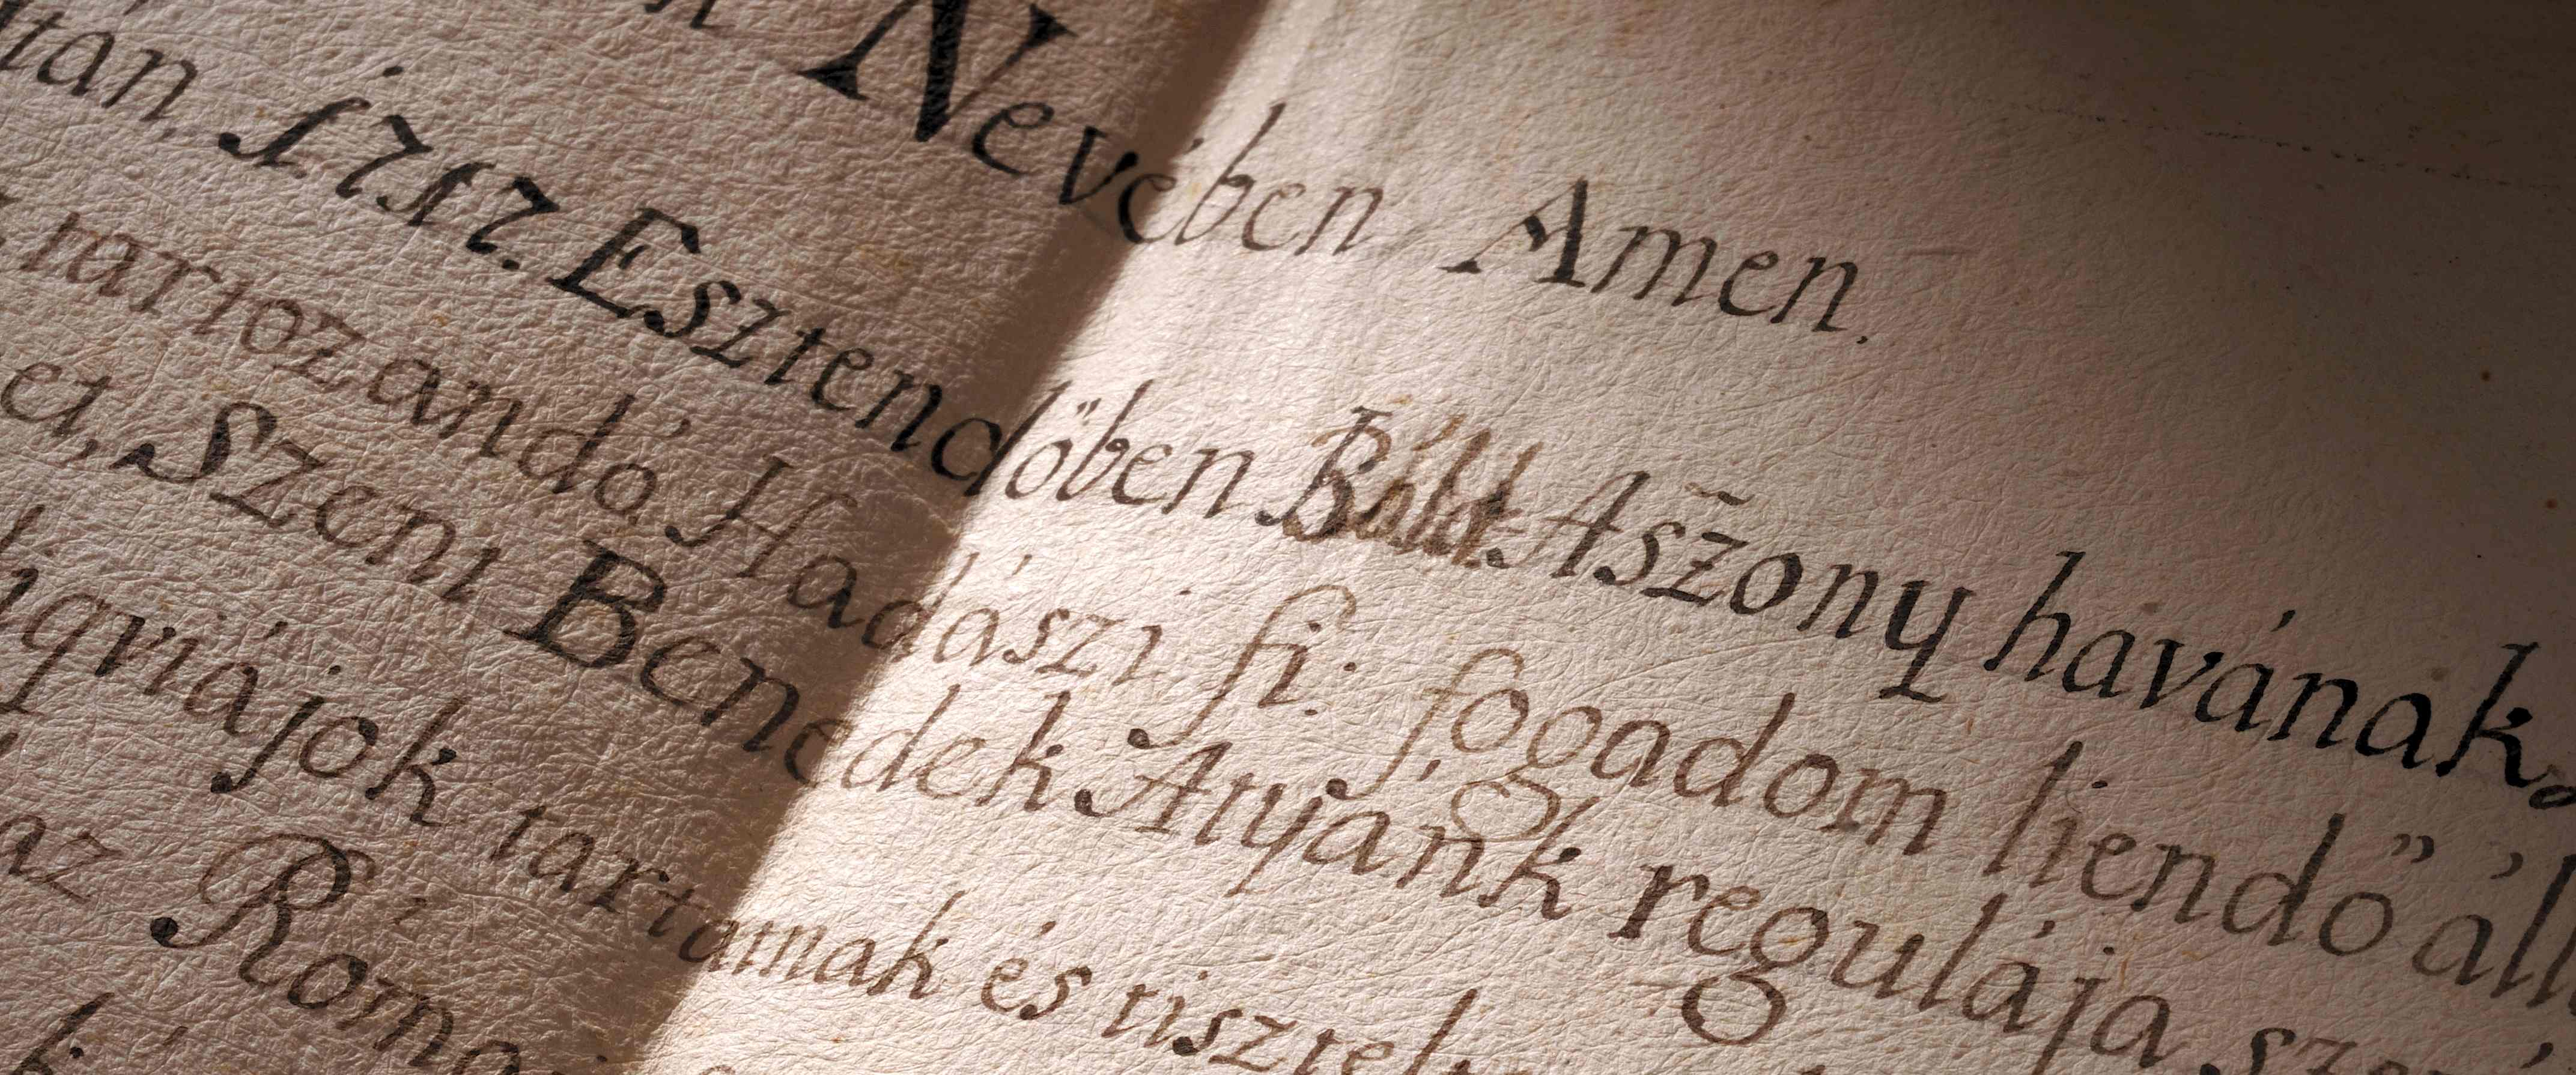 Nevében Amen.
tán, 1717. Esztendőben Bóld. Aszony havának,
tartozandó Hadászi fi: fogadom liendő áll
et, Szent Benedek Atyánk regulája sze
tartattnak és tisztel
az Roma